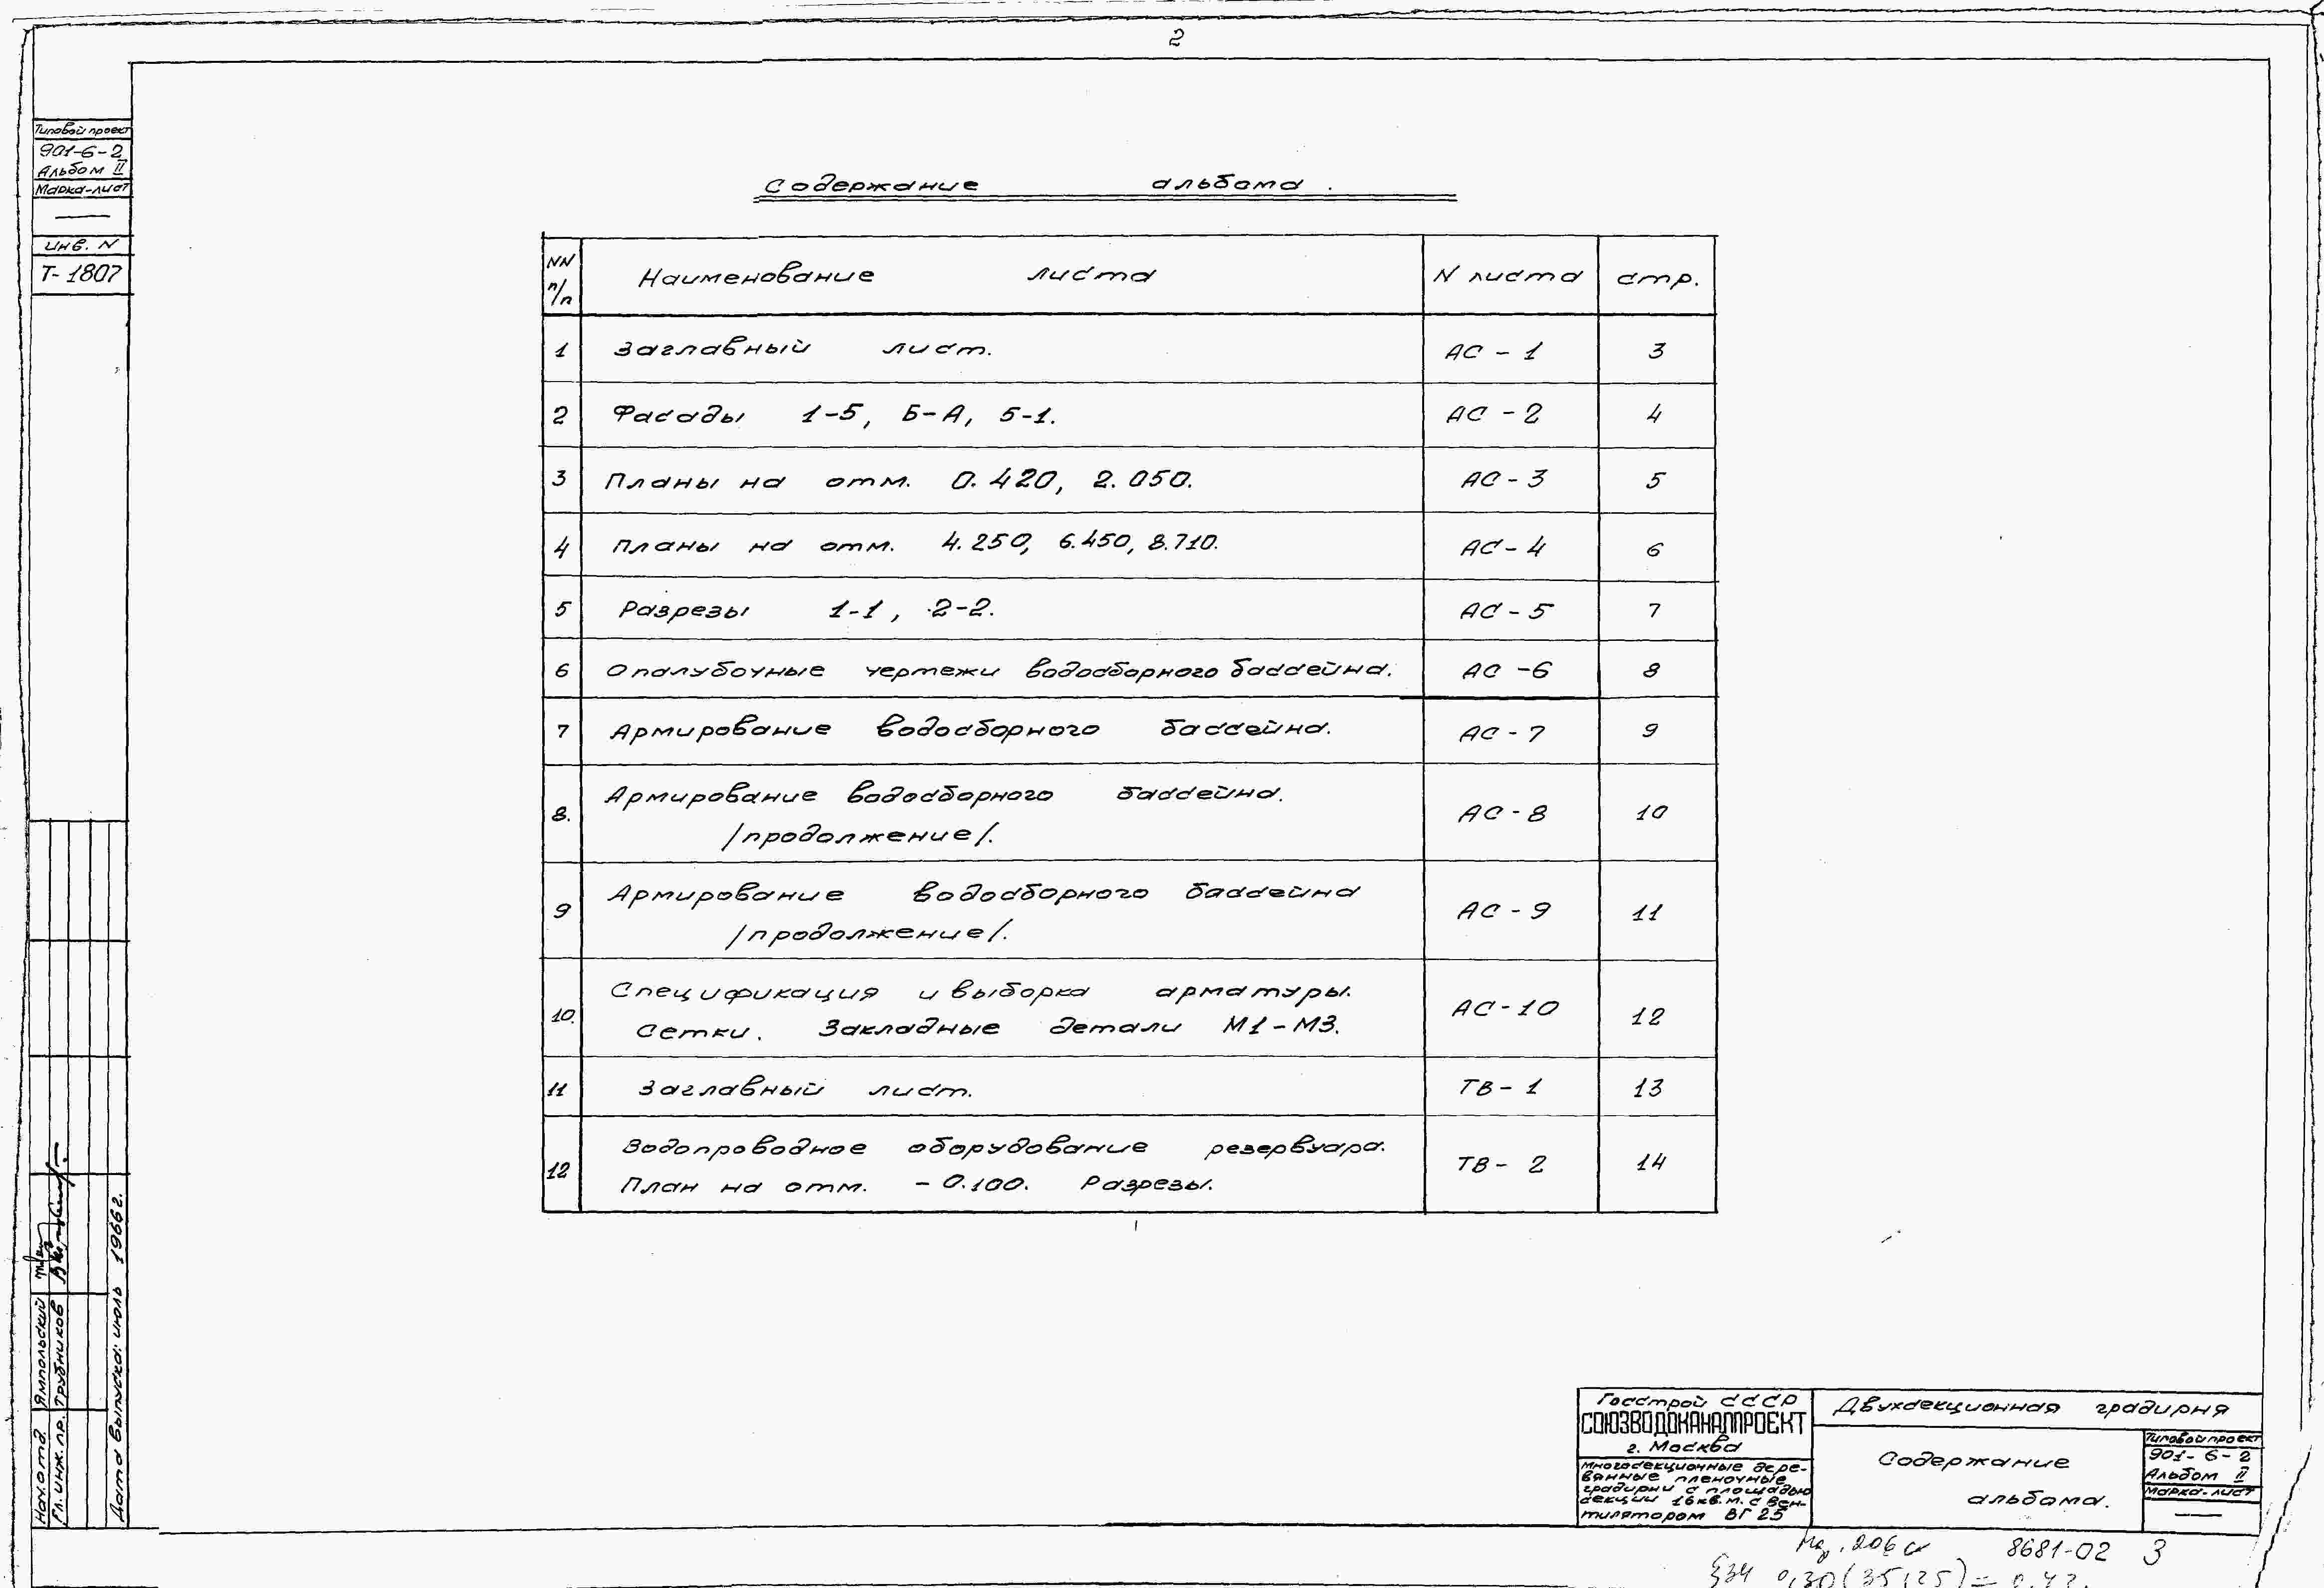 2
Типовой проект
901-6-2
Альбом II
Марка-лист
Инв. N
Т-1807
Содержание альбома.
NN п/п Наименование листа N листа стр.
1 Заглавный лист. АС-1 3
2 Фасады 1-5, Б-А, 5-1. АС-2 4
3 Планы на отм. 0.420, 2.050. АС-3 5
4 Планы на отм. 4.250, 6.450, 8.710. АС-4 6
5 Разрезы 1-1, 2-2. АС-5 7
6 Опалубочные чертежи водосборного бассейна. АС-6 8
7 Армирование водосборного бассейна. АС-7 9
8. Армирование водосборного бассейна.
/продолжение/. АС-8 10
9 Армирование водосборного бассейна
/продолжение/. АС-9 11
10. Спецификация и выборка арматуры.
Сетки. Закладные детали М1-М3. АС-10 12
11 Заглавный лист. ТВ-1 13
12 Водопроводное оборудование резервуара.
План на отм. -0.100. Разрезы. ТВ-2 14
Нач. отд. Ямпольский
Гл. инж. пр. Трубников
Дата выпуска: июль 1966г.
Госстрой СССР
СОЮЗВОДОКАНАЛПРОЕКТ
г. Москва
Многосекционные дере-
вянные пленочные
градирни с площадью
секции 16 кв. м. с вен-
тилятором ВГ 25
Двухсекционная градирня
Содержание
альбома.
Типовой проект
901-6-2
Альбом II
Марка-лист
8681-02 3